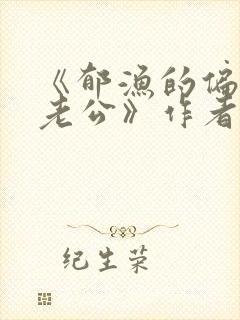 《郁渔的偏
老公》作者
纪生荣